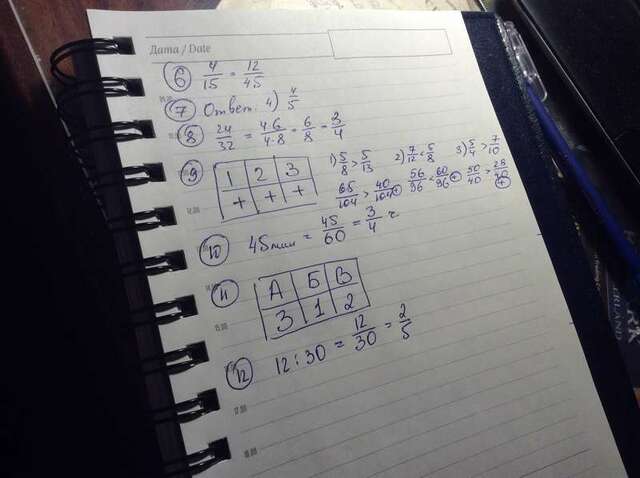 Дата / Date
6 4/15 = 12/45
7 Ответ: 4) 4/5
8 24/32 = 4·6/4·8 = 6/8 = 3/4
9 1 2 3
+ + +
1) 5/8 > 5/13 2) 7/12 < 5/8 3) 5/4 > 7/10
65/104 > 40/104 + 56/96 < 60/96 + 50/40 > 28/40 +
10 45 мин = 45/60 = 3/4 ч
11 А Б В
3 1 2
12 12 : 30 = 12/30 = 2/5
17.00
18.00